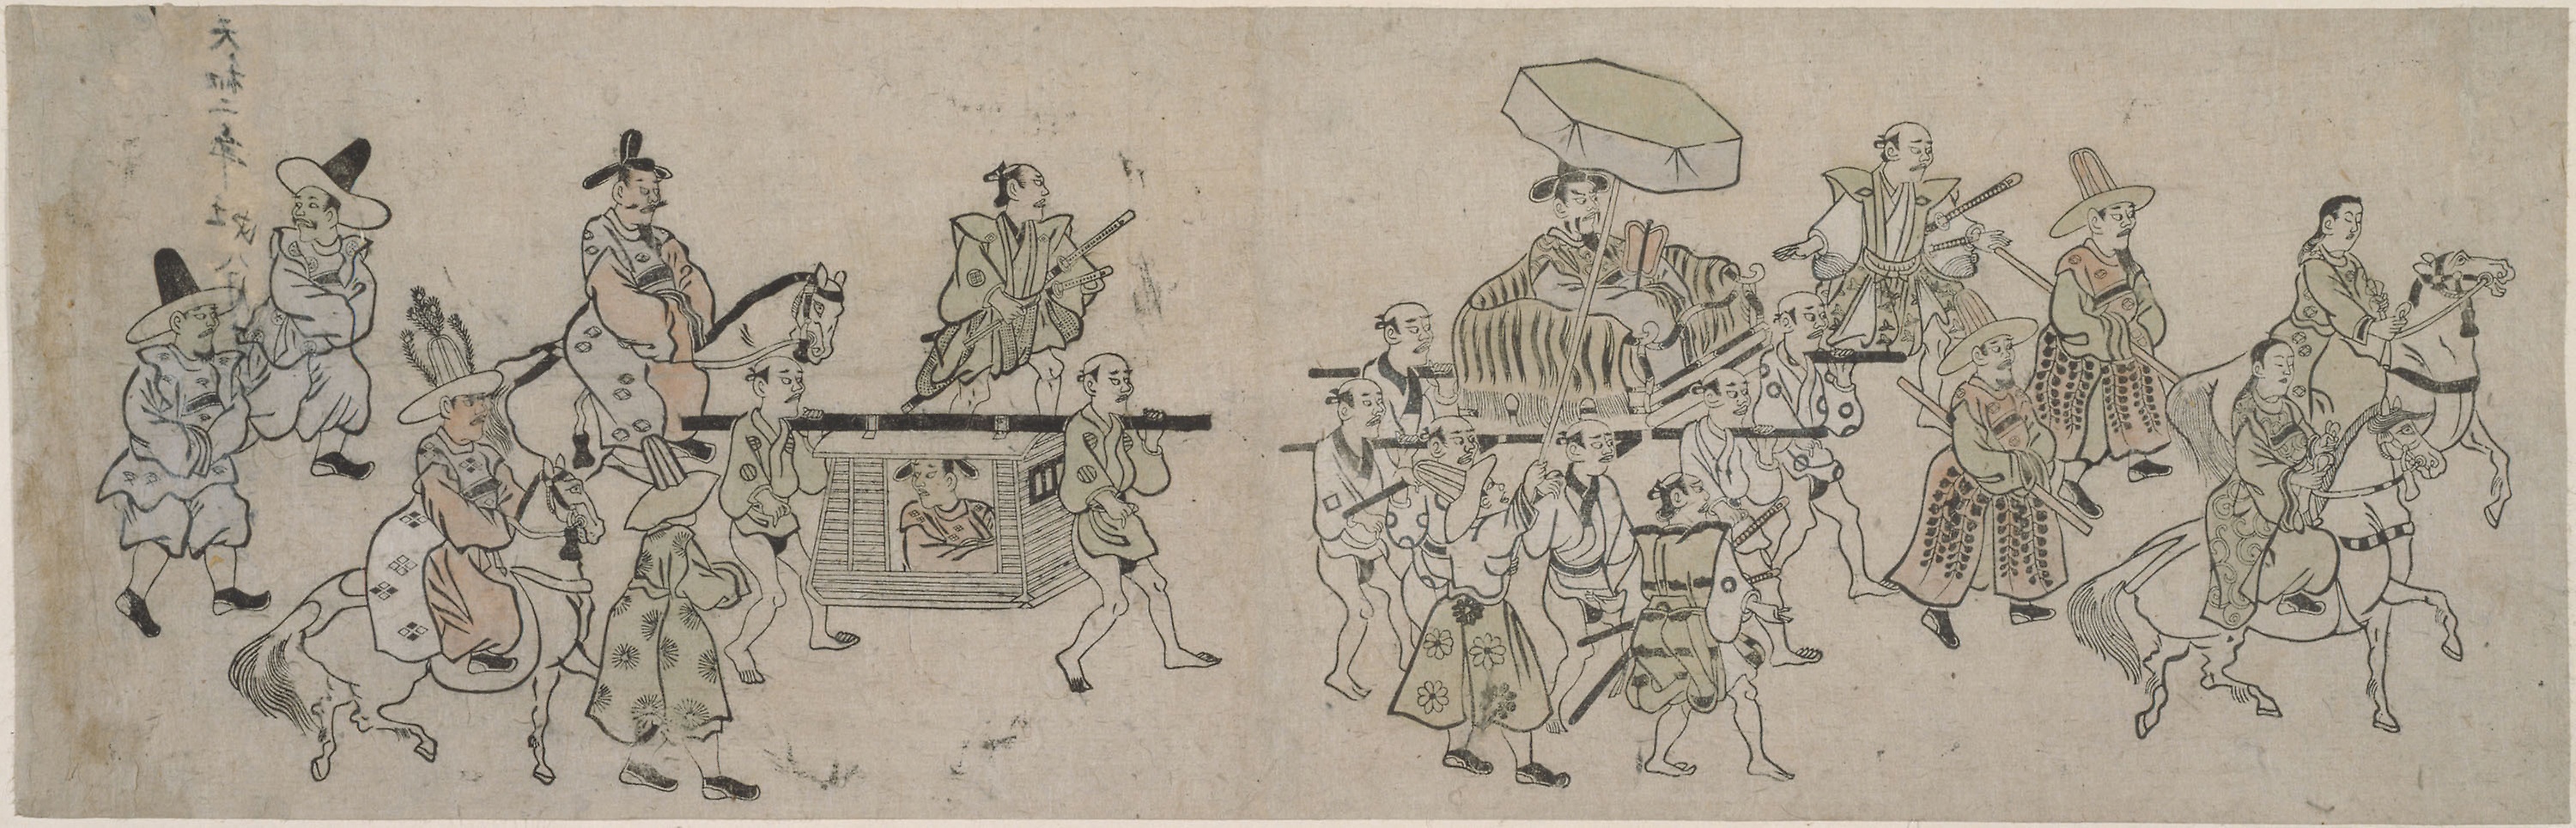 天和二年壬戌八月